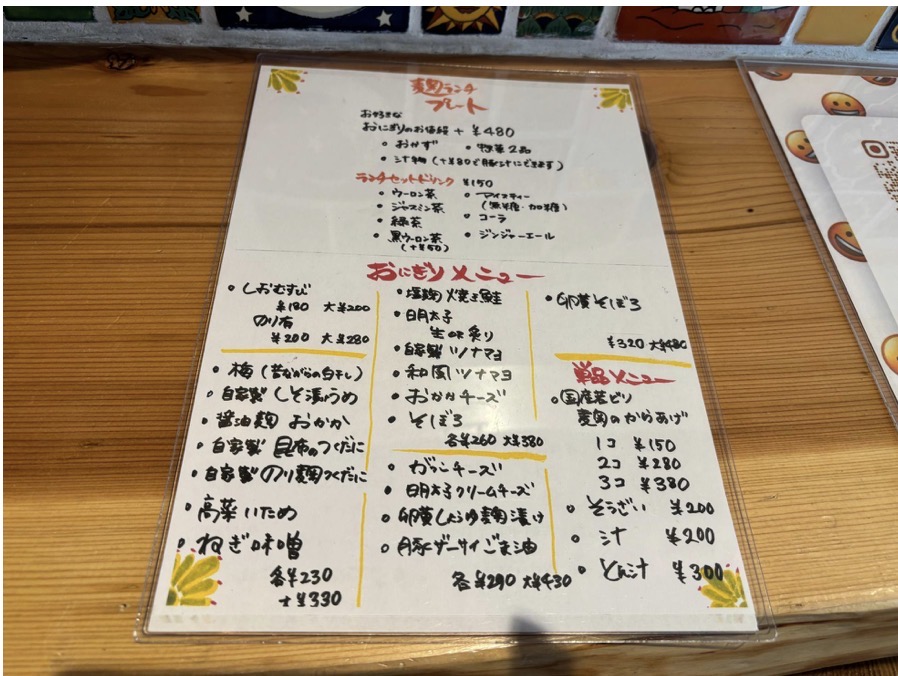 麹ランチ
プレート
お好きな
おにぎりのお値段 + ¥480
• おかず • 惣菜2品
• 汁物 (+¥80で豚汁にできます)
ランチセットドリンク ¥150
• ウーロン茶
• ジャスミン茶
• 緑茶
• 黒ウーロン茶
(+¥50)
• アイスティー
(無糖・加糖)
• コーラ
• ジンジャーエール
おにぎりメニュー
• しおむすび
¥180 大¥200
のり有
¥200 大¥280
• 梅 (昔ながらの白干し)
• 自家製 しそ漬けうめ
• 醤油麹 おかか
• 自家製 昆布のつくだに
• 自家製 のり麹つくだに
• 高菜いため
• ねぎ味噌
各¥230
大¥330
• 塩麹焼き鮭
• 明太子
生or炙り
• 自家製ツナマヨ
• 和風ツナマヨ
• おかかチーズ
• そぼろ
各¥260 大¥380
• ガツンチーズ
• 明太子クリームチーズ
• 卵黄しょうゆ麹漬け
• 豚ザーサイごま油
各¥290 大¥430
• 卵黄そぼろ
¥320 大¥480
単品メニュー
• 国産若どり
麹のからあげ
1コ ¥150
2コ ¥280
3コ ¥380
• そうざい ¥200
• 汁 ¥200
• とん汁 ¥300